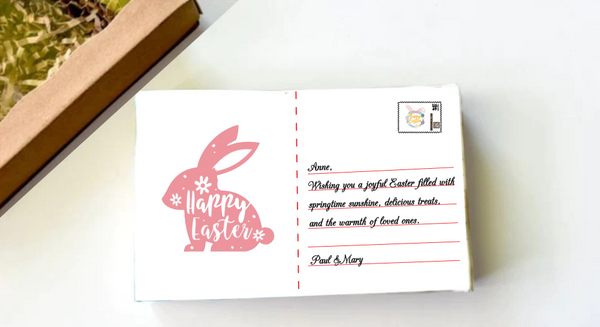 Happy
Easter
Anne,
Wishing you a joyful Easter filled with
springtime sunshine, delicious treats,
and the warmth of loved ones.
Paul & Mary